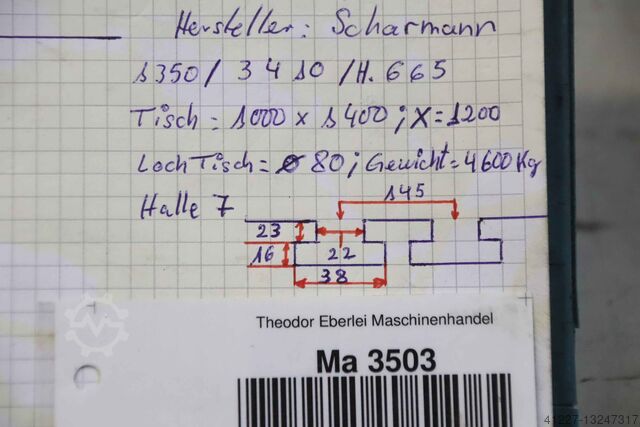 Hersteller: Scharmann
1350 / 3410 / H. 665
Tisch = 1000 x 1400 ; X = 1200
Loch Tisch = ø 80 ; Gewicht = 4600 Kg
Halle 7
145
23
16
22
38
Theodor Eberlei Maschinenhandel
Ma 3503
41227-13247317